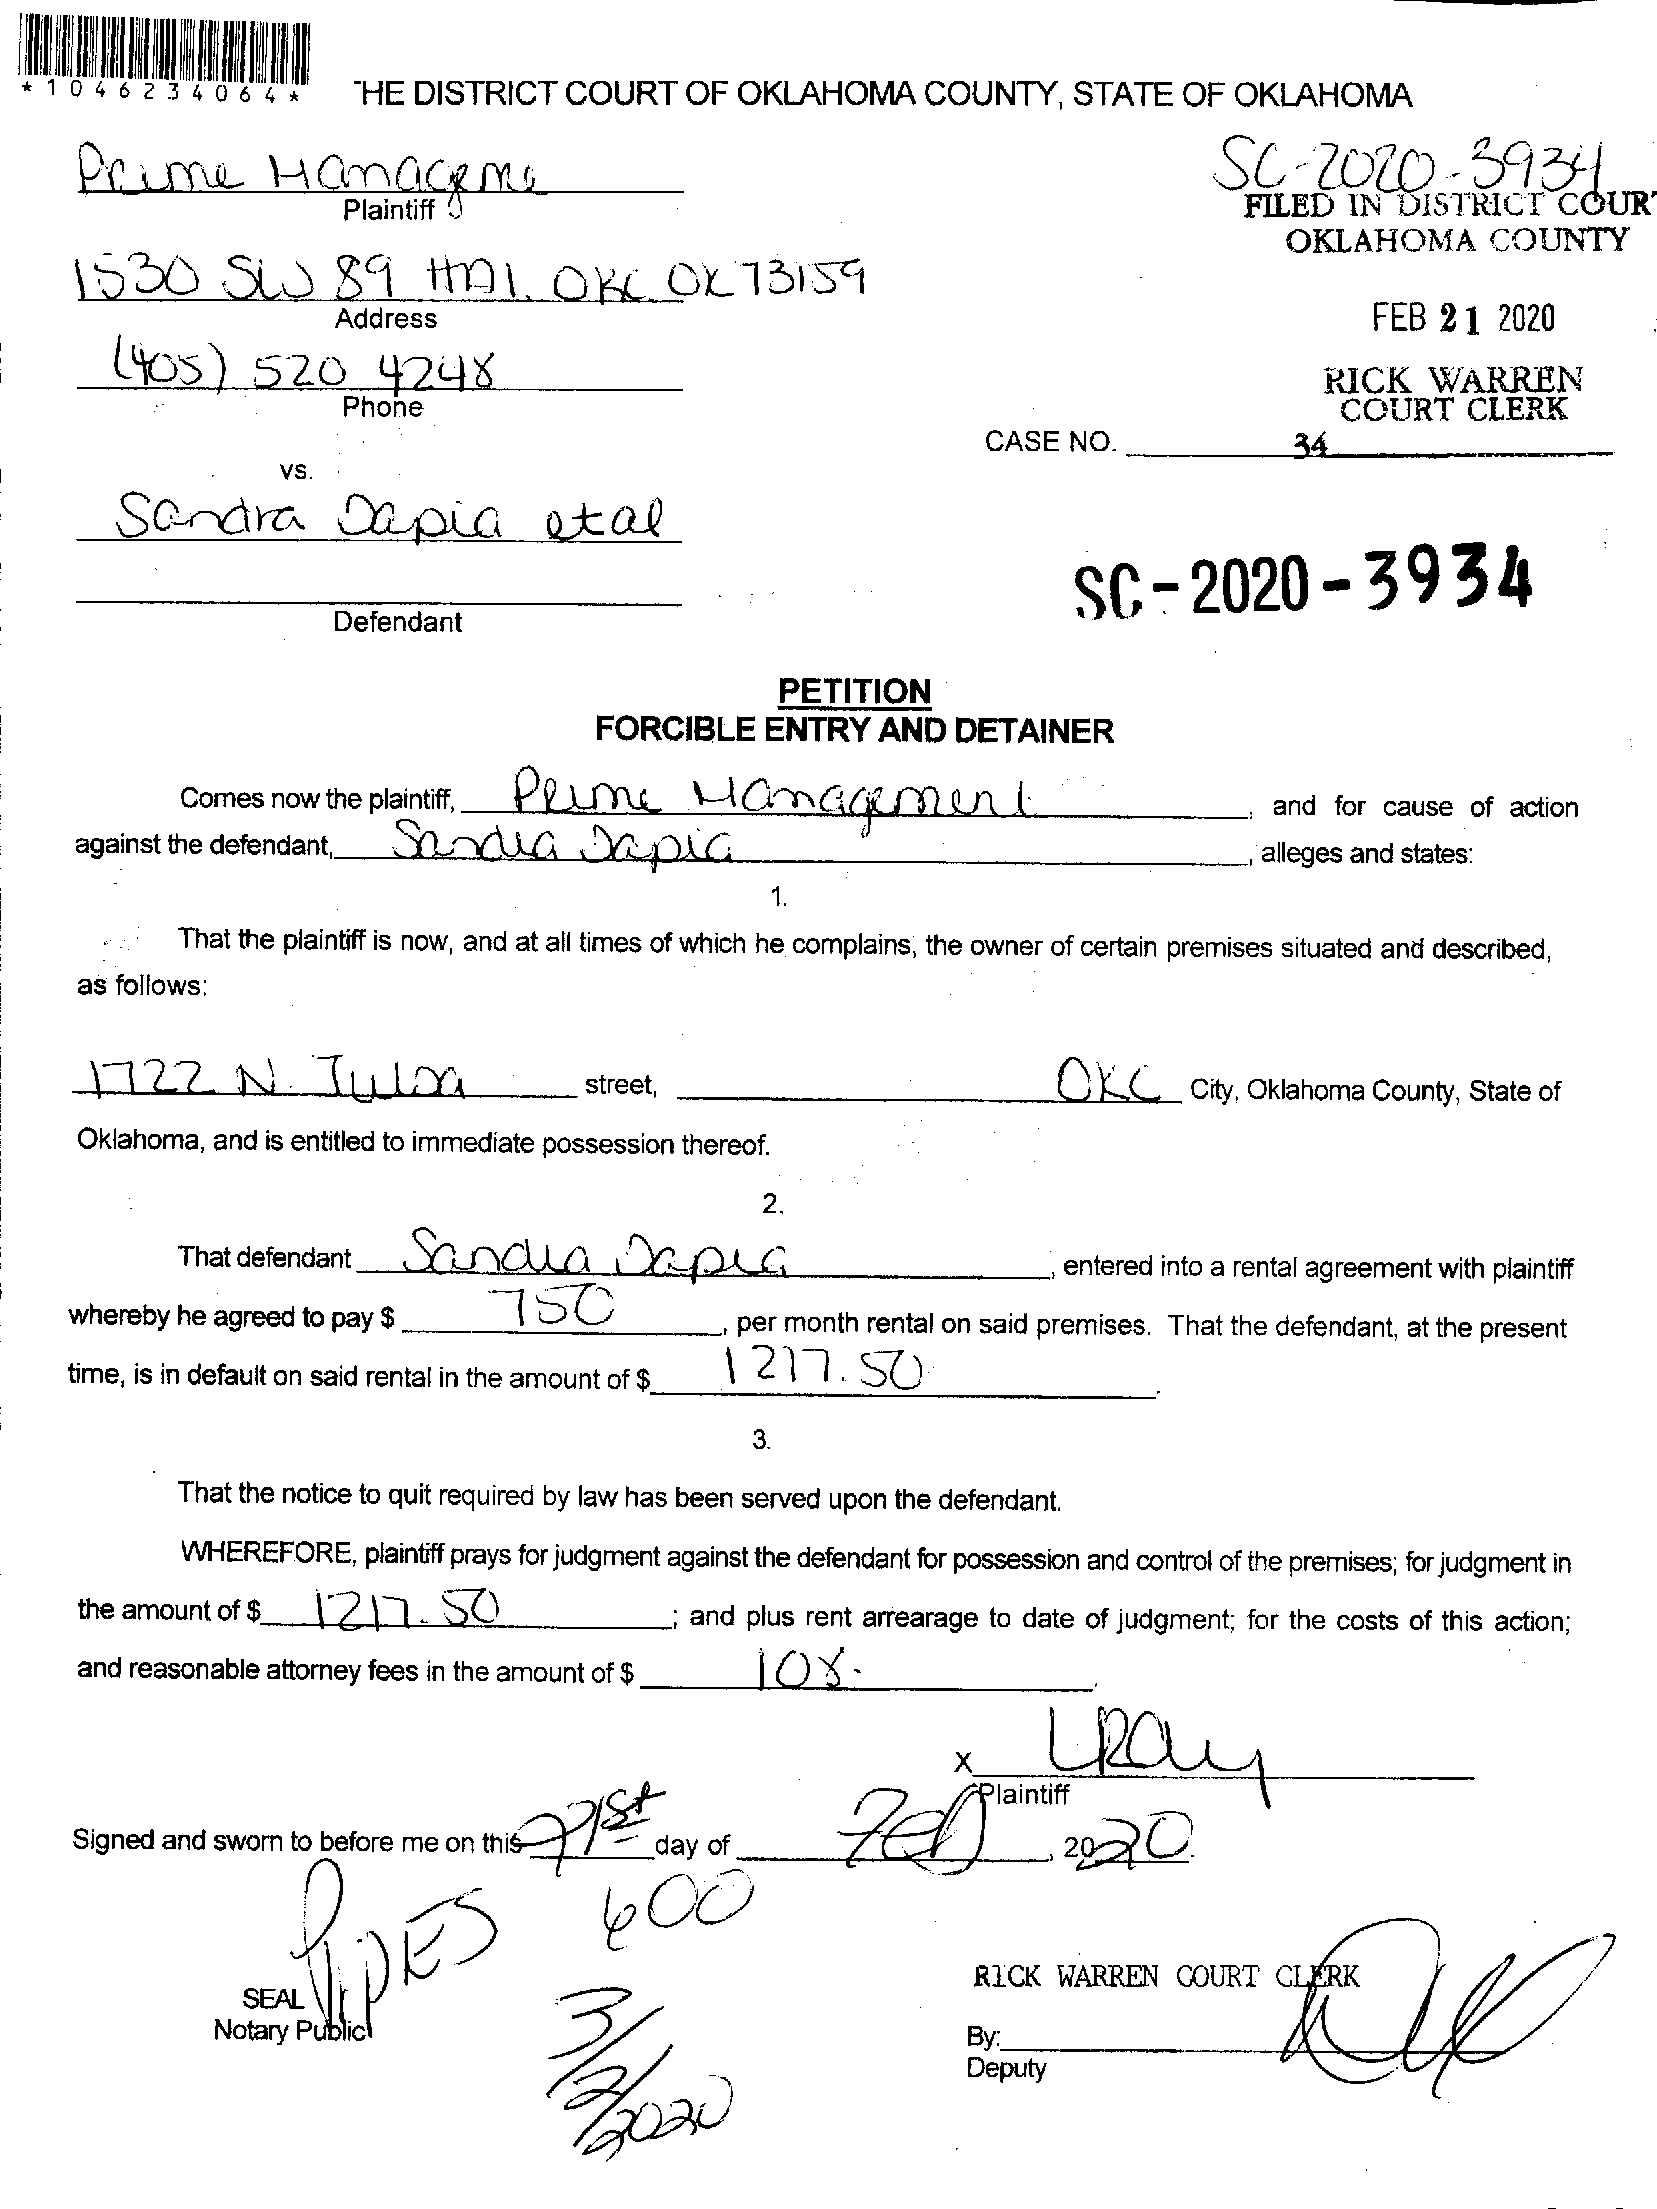 *1046234064*
THE DISTRICT COURT OF OKLAHOMA COUNTY, STATE OF OKLAHOMA
Prime Manageme
Plaintiff
SC-2020-3934
FILED IN DISTRICT COURT
OKLAHOMA COUNTY
1530 SW 89 OKC OK 73159
Address
FEB 21 2020
(405) 520 4248
Phone
RICK WARREN
COURT CLERK
CASE NO. 34
vs.
Sandra Dapia etal
SC-2020-3934
Defendant
PETITION
FORCIBLE ENTRY AND DETAINER
Comes now the plaintiff, Prime Management, and for cause of action
against the defendant, Sandra Dapia, alleges and states:
1.
That the plaintiff is now, and at all times of which he complains, the owner of certain premises situated and described,
as follows:
1722 N. Tulsa street, OKC City, Oklahoma County, State of
Oklahoma, and is entitled to immediate possession thereof.
2.
That defendant Sandra Dapia, entered into a rental agreement with plaintiff
whereby he agreed to pay $ 750, per month rental on said premises. That the defendant, at the present
time, is in default on said rental in the amount of $ 1217.50.
3.
That the notice to quit required by law has been served upon the defendant.
WHEREFORE, plaintiff prays for judgment against the defendant for possession and control of the premises; for judgment in
the amount of $ 1217.50; and plus rent arrearage to date of judgment; for the costs of this action;
and reasonable attorney fees in the amount of $ 108-.
X LRay
Plaintiff
Signed and sworn to before me on this 21st day of Feb, 2020.
600
SEAL
Notary Public
3/2/2020
RICK WARREN COURT CLERK
By:
Deputy